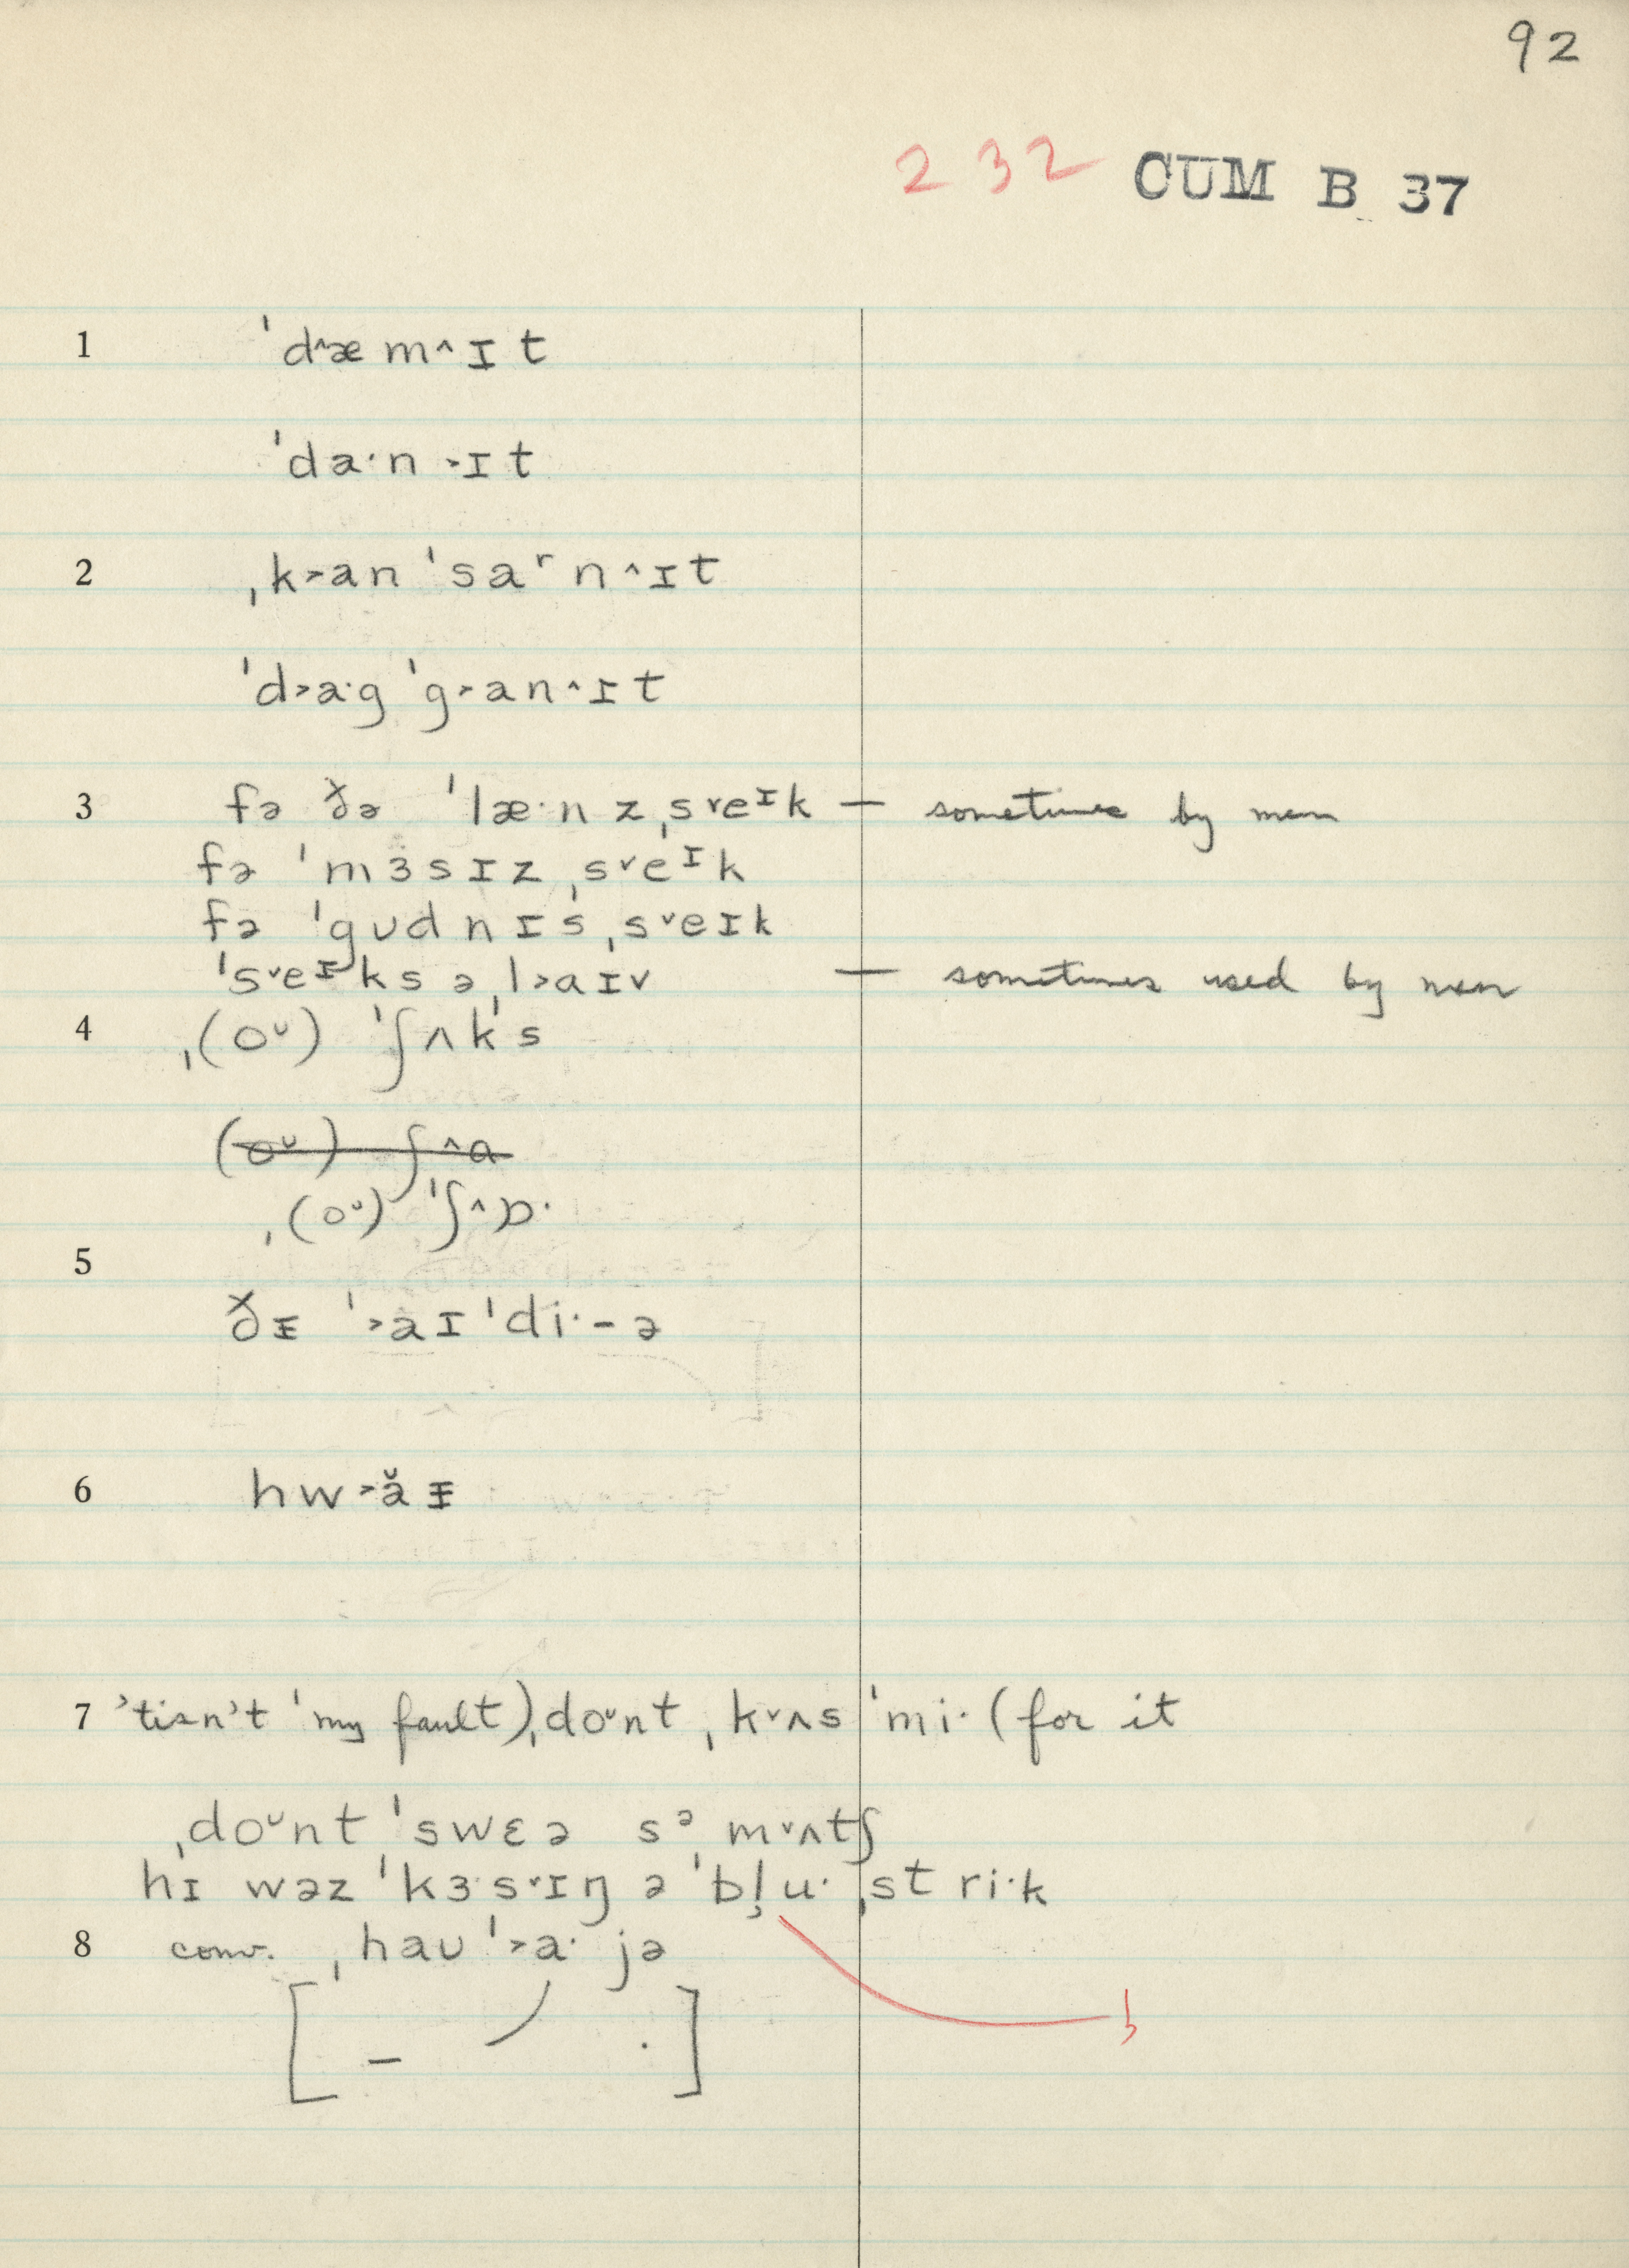 92
232 CUM B 37
1 ˈd˄æm˄ɪt
ˈda·n˃ɪt
2 ˌk˃anˈsaʳn˄ɪt
ˈd˃a·gˈg˃an˄ɪt
3 fə ðə ˈlæ·nzˌs˅eᶦk — sometimes by men
fə ˈmɜsɪzˌs˅eᶦk
fə ˈgʊdnɪsˌs˅eɪk
ˈs˅eᶦks əˌl˃aɪv — sometimes used by men
4 ˌ(oᶷ) ˈʃʌks
(oᶷ) ʃ˄a
ˌ(oᶷ) ˈʃ˄ɒ·
5
ðɪ ˈ˃aɪˈdi·-ə
6 hw˃ăɪ
7 'tisn't ˈmy fault)ˌdoᶷnt ˌk˅ʌs ˈmi· (for it
ˌdoᶷnt ˈswɛə sᵊ m˅ʌtʃ
hɪ wəz ˈkɜ·s˅ɪŋ ə ˈbl̥u· ˌstri·k
8 conv. ˌhaʊ ˈ˃a· jə
[ – ⟋ . ]